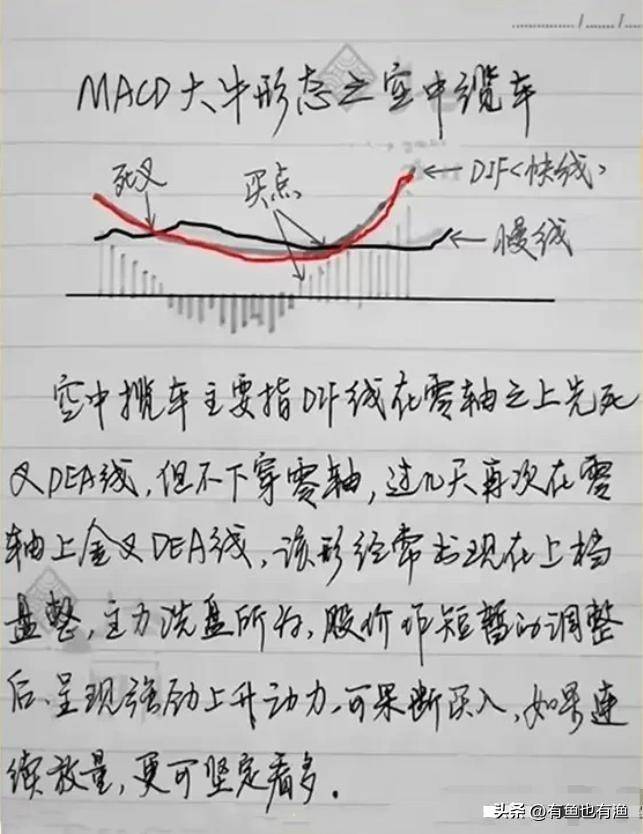 MACD大牛形态之空中缆车
死叉
买点
DIF<快线>
慢线
空中揽车主要指DIF线在零轴之上先死
叉DEA线,但不下穿零轴,过几天再次在零
轴上金叉DEA线,该形经常出现在上档
盘整,主力洗盘所为,股价作短暂的调整
后、呈现强劲上升动力,可果断买入,如果连
续放量,更可坚定看多.
头条 @有鱼也有渔